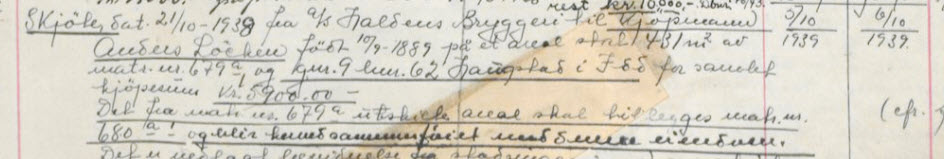 rest kr. 10,000,-
Skjöte, dat. 21/10-1938 fra A/S Haldens Bryggeri til Kjöpmann 5/10 6/10
Anders Löchen född 10/9-1889 på et areal stort 431 m² av 1939 1939.
matr. nr. 679a, og gnr. 9 bnr. 62 Haugstad i Idd for samlet
kjöpesum Kr. 5900.00 -
Det fra matr. nr. 679a utskilte areal skal tillegges matr. nr. (cfr.
680a og blir hermed sammenföiet med denne eiendom.
Det er